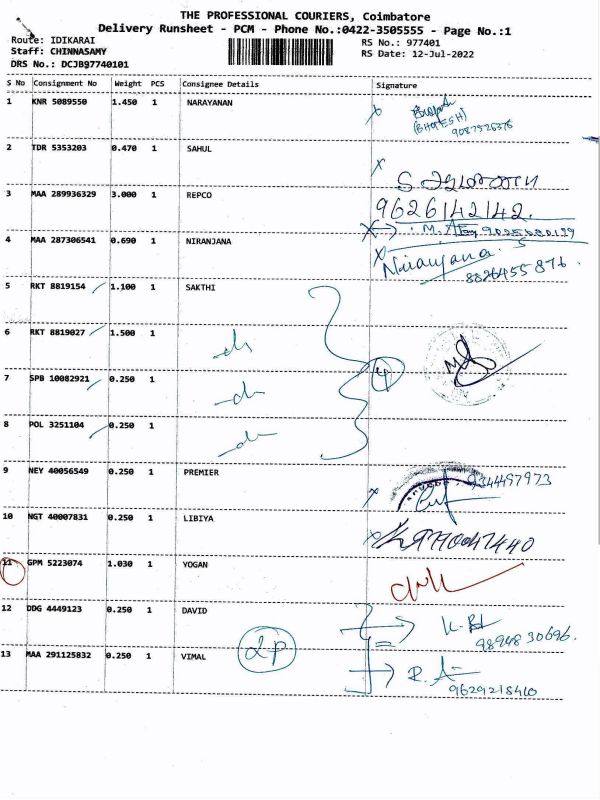 THE PROFESSIONAL COURIERS, Coimbatore
Delivery Runsheet - PCM - Phone No.:0422-3505555 - Page No.:1
Route: IDIKARAI
RS No.: 977401
Staff: CHINNASAMY
RS Date: 12-Jul-2022
DRS No.: DCJB97740101
S No Consignment No Weight PCS Consignee Details Signature
1 KNR 5089550 1.450 1 NARAYANAN
(BHOTESH)
9087526376
2 TDR 5353203 0.470 1 SAHUL
3 MAA 289936329 3.000 1 REPCO
9626142142.
4 MAA 287306541 0.690 1 NIRANJANA
Niranjana
8826455876.
5 RKT 8819154 1.100 1 SAKTHI
6 RKT 8819027 1.500 1 -do-
7 SPB 10082921 0.250 1 -do-
4
8 POL 3251104 0.250 1 -do-
9 NEY 40056549 0.250 1 PREMIER
934497973
10 NGT 40007831 0.250 1 LIBIYA
11 GPM 5223074 1.030 1 YOGAN
12 DDG 4449123 0.250 1 DAVID
9894830696.
13 MAA 291125832 0.250 1 VIMAL
2P
9629218410